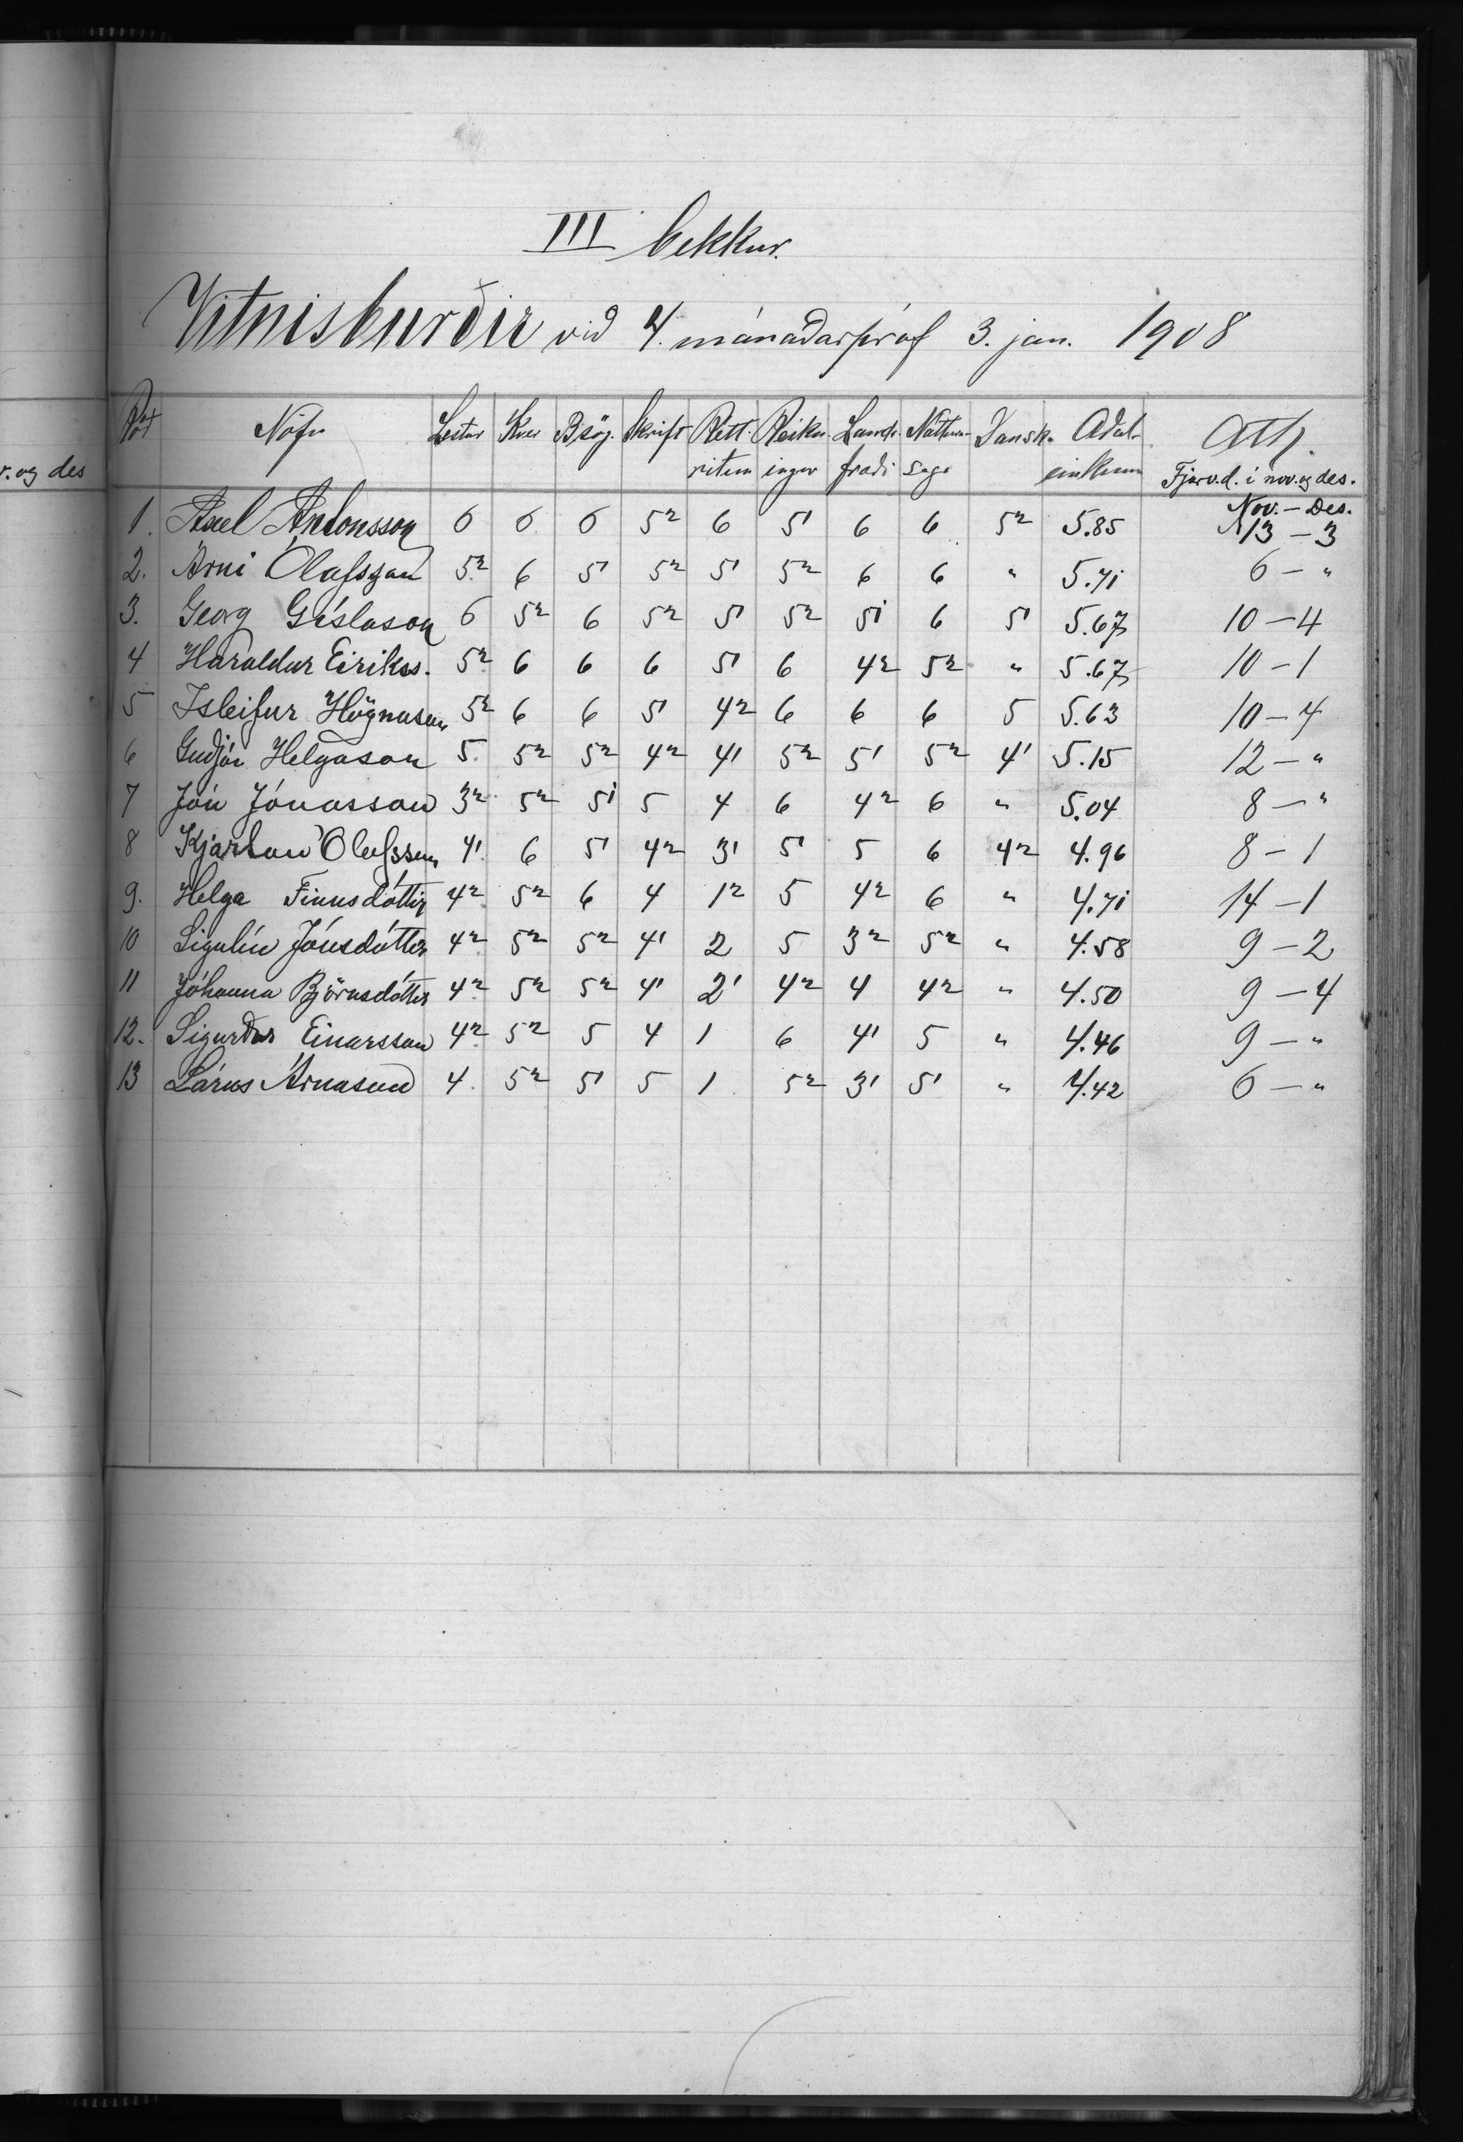 r. og des
III bekkur.
Vitnisburðir við 4. mánaðarpróf 3. jan. 1908
Röð Nöfn Lestur Kver B.sög. Skrift Rétt- Reikn- Land- Náttúru- Dansk. Aðal- Ath.
ritun ingur fræði saga einkunn Fjarv.d. í nov. og des.
Nov. - Des.
1. Axel Antonsson 6 6 6 5² 6 5¹ 6 6 5² 5.85 13 - 3
2. Árni Ólafsson 5² 6 5¹ 5² 5¹ 5² 6 6 " 5.71 6 - "
3. Georg Gíslason 6 5² 6 5² 5¹ 5² 5¹ 6 5¹ 5.67 10 - 4
4 Haraldur Eirikss. 5² 6 6 6 5¹ 6 4² 5² " 5.67 10 - 1
5 Isleifur Högnason 5² 6 6 5¹ 4² 6 6 6 5 5.63 10 - 4
6 Guðjón Helgason 5 5² 5² 4² 4¹ 5² 5¹ 5² 4¹ 5.15 12 - "
7 Jón Jónasson 3² 5² 5¹ 5 4 6 4² 6 " 5.04 8 - "
8 Kjartan Ólafsson 4¹ 6 5¹ 4² 3¹ 5¹ 5 6 4² 4.96 8 - 1
9. Helga Finnsdóttir 4² 5² 6 4 1² 5 4² 6 " 4.71 14 - 1
10 Sigulín Jónsdóttir 4² 5² 5² 4¹ 2 5 3² 5² " 4.58 9 - 2
11 Jóhanna Björnsdóttir 4² 5² 5² 4¹ 2¹ 4² 4 4² " 4.50 9 - 4
12. Sigurður Einarsson 4² 5² 5 4 1 6 4¹ 5 " 4.46 9 - "
13 Lárus Árnason 4 5² 5¹ 5 1 5² 3¹ 5¹ " 4.42 6 - "